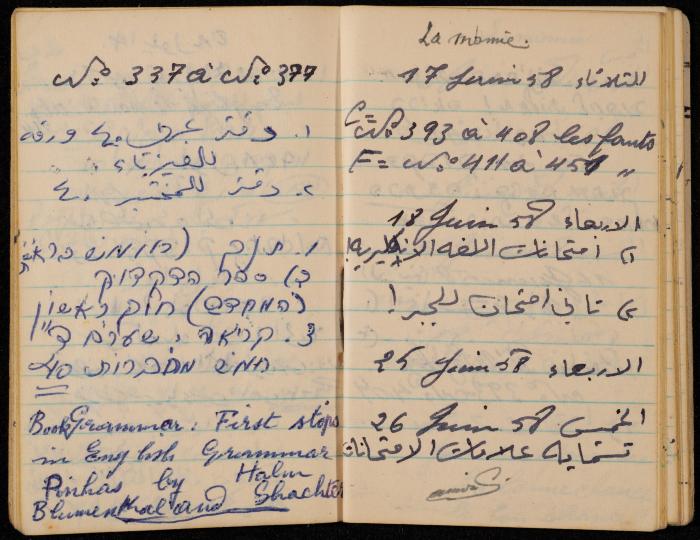 No: 337 à No: 377
١. دفتر شرف ٤٠ ورقة
للفيزياء
٢. دفتر للمختبر ٤٠
ספר הדקדוק
חלק ראשון
3. קריאה, שערים
חמש מחברות 40
Book Grammar: First steps
in English Grammar
by Halm
Pinhas
Blumenthal and Shachter
La momie.
للثلاثاء 17 Juin 58
C= No: 393 à 408 les fauts
F= No: 411 à 451 "
الاربعاء 18 Juin 58
١) امتحانات اللغه الانكليزيه!
٢) تاني امتحان للجبر!
الاربعاء 25 Juin 58
الخميس 26 Juin 58
علامات الامتحانات